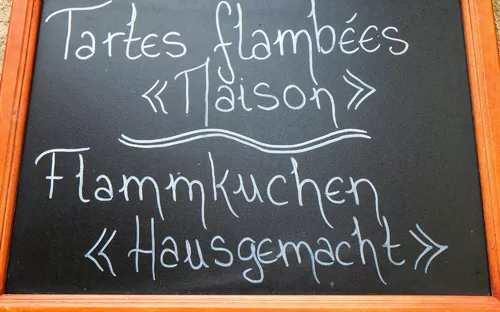 Tartes flambées
« Maison »
Flammkuchen
« Hausgemacht »